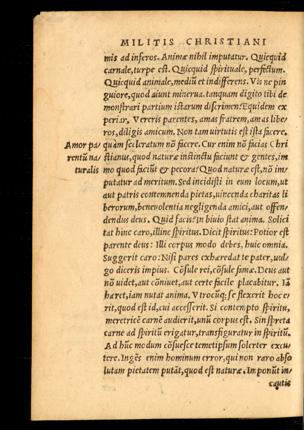 MILITIS CHRISTIANI
mis ad inferos. Animæ nihil imputatur. Quicquid
carnale, turpe est. Quicquid spirituale, perfectum.
Quicquid animale, mediũ et indifferens. Vis ne pin
guiore, quod aiunt minerua. tanquam digito tibi de
monstrari partium istarum discrimen? Equidem ex
periar. Vereris parentes, amas fratrem, amas libe
ros, diligis amicum. Non tam uirtutis est ista facere,
Amor pa
rentũ na
turalis
quàm sceleratum nõ facere. Cur enim nõ facias Chri
stianus, quod naturæ instinctu faciunt & gentes, im
mo quod faciũt & pecora? Quod naturæ est, nõ im
putatur ad meritum. Sed incidisti in eum locum, ut
aut patris contemnenda pietas, uincenda charitas li
berorum, beneuolentia negligenda amici, aut offen
dendus deus. Quid facis? In biuio stat anima. Solici
tat hinc caro, illinc spiritus. Dicit spiritus: Potior est
parente deus: Illi corpus modo debes, huic omnia.
Suggerit caro: Nisi pares exhæredat te pater, uul
go diceris impius. Cõsule rei, cõsule famæ. Deus aut
nõ uidet, aut cõniuet, aut certe facile placabitur. Iã
hæret, iam nutat anima. Vtrocũq; se flexerit hoc e
rit, quod est id, cui accesserit. Si contempto spiritu,
meretricẽ carnẽ audierit, unũ corpus est. Sin spreta
carne ad spiritũ erigatur, transfiguratur in spiritũ.
Ad hũc modum cõsuesce temetipsum solerter excu
tere. Ingẽs enim hominum error, qui non raro abso
lutam pietatem putãt, quod est naturæ. Imponũt in
cautis